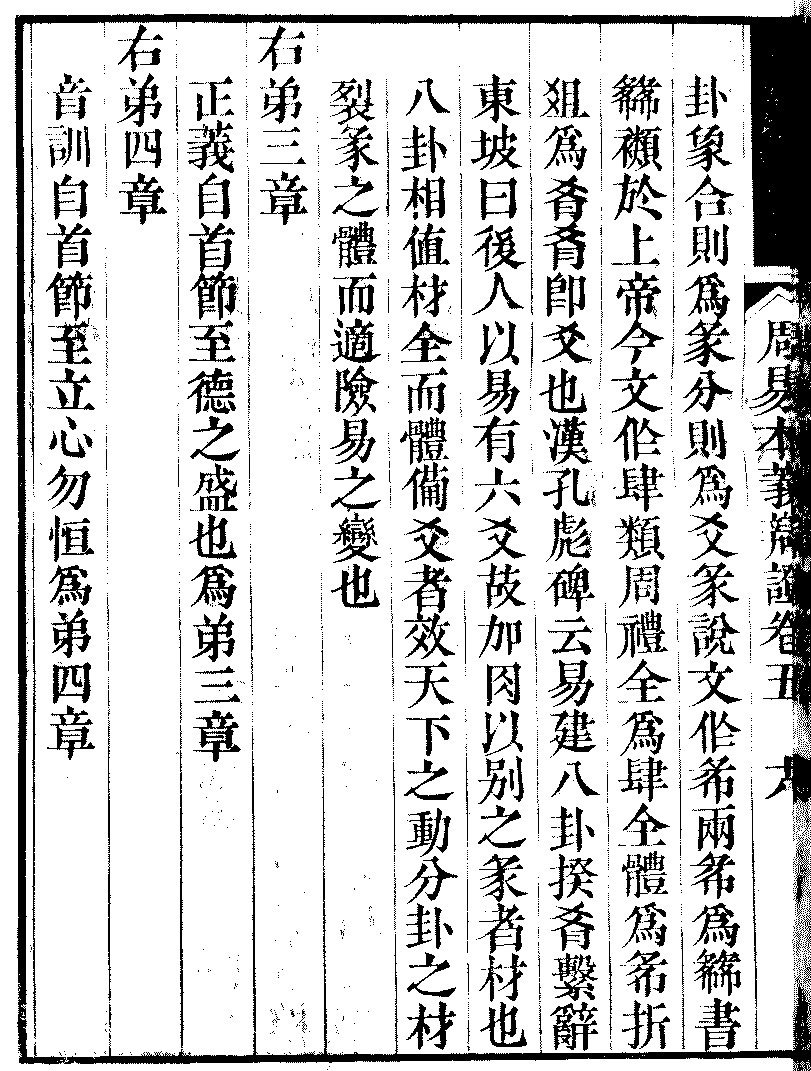 周易本義辯證卷五 六
卦象合則爲彖分則爲爻彖說文作㣇兩㣇爲𢑥書
𢑥禷於上帝今文作肆類周禮全爲肆全體爲㣇折
俎爲肴肴卽爻也漢孔彪碑云易建八卦揆肴繫辭
東坡曰後人以易有六爻故加肉以別之彖者材也
八卦相值材全而體備爻者效天下之動分卦之材
裂彖之體而適險易之變也
右弟三章
正義自首節至德之盛也爲弟三章
右弟四章
音訓自首節至立心勿恒爲弟四章